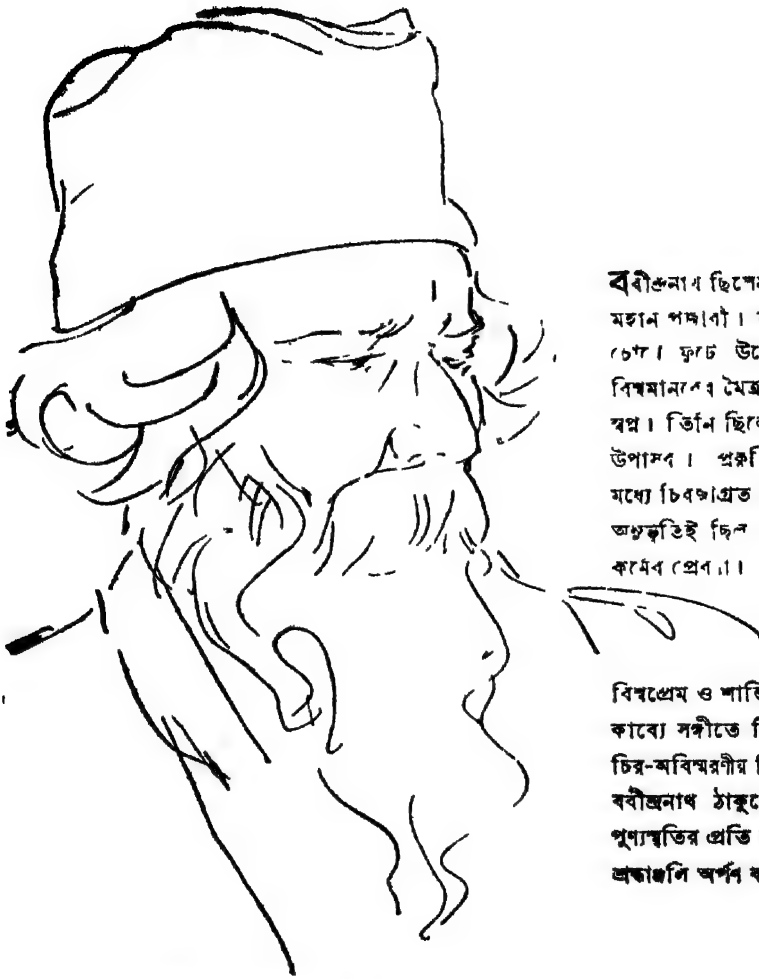 রবীন্দ্রনাথ ছিলেন
মহান পূজারী ।
ফুটে উঠে
বিশ্বমানবের মৈত্র
স্বপ্ন । তিনি ছিলে
উপাসক । প্রকৃতি
মধ্যে চিরজাগ্রত
অনুভূতিই ছিল
কর্মের প্রেরণা ।
বিশ্বপ্রেম ও শান্তি
কাব্যে সঙ্গীতে
চির-অবিস্মরণীয়
ববীন্দ্রনাথ ঠাকুরে
পুণ্যস্মৃতির প্রতি
শ্রদ্ধাঞ্জলি অর্পণ ক